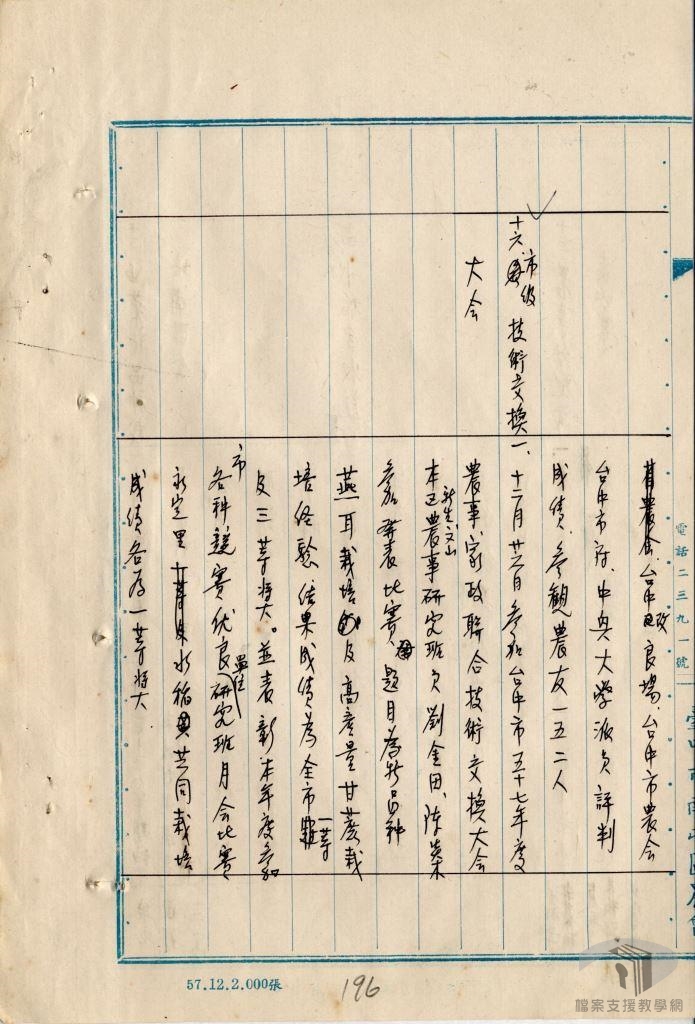 電話二三九一號
省農會、台中區改良場、台中市農會
台中市府、中興大學派員評判
成績、參觀農友一五二人
十六、市級技術交換
大会
一、十二月廿六日參加台中市五十七年度
農事家政聯合技術交換大会
本区新生、文山農事研究班員劉金田、陳
參加發表比賽、題目為新品种
燕耳栽培及高產量甘蔗栽
培经驗结果成績為全市一等
及三等獎。並表彰本年度參加
市各种競賽优良單位研究班月会比賽
永定里水稲共同栽培
成績各為一等獎
57.12.2.000張
196
檔案支援教學網